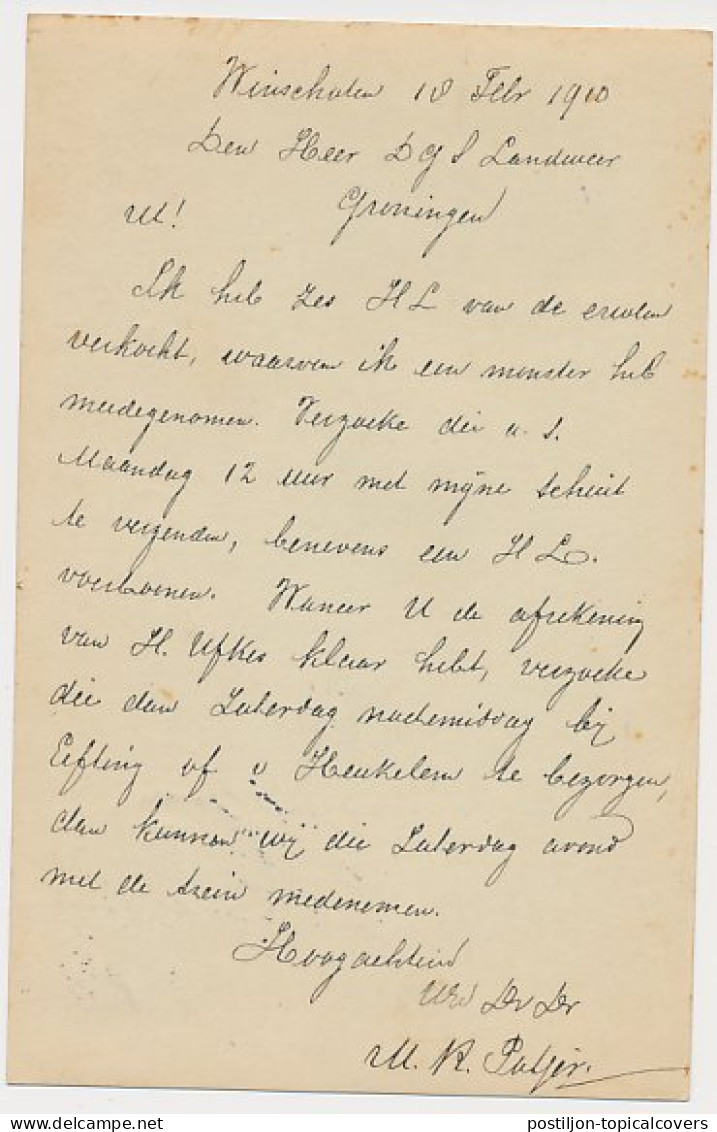 Winschoten 18 Febr 1910
Den Heer D G S Landweer
M! Groningen
Ik heb zes H L van de erwten
verkocht, waarvan ik een monster heb
meedegenomen. Verzoeke die a. s.
Maandag 12 uur met mijne schuit
te verzenden, benevens een H L.
voerboonen. Waneer U de afrekening
van H. Ufkes klaar hebt, verzoeke
die dan Zaterdag nademiddag bij
Eefting of v Heukelem te bezorgen,
dan kunnen wij die Zaterdag avond
met de trein medenemen.
Hoogachtend
Uw Dv Dr
M. K.
postiljon-topicalcovers